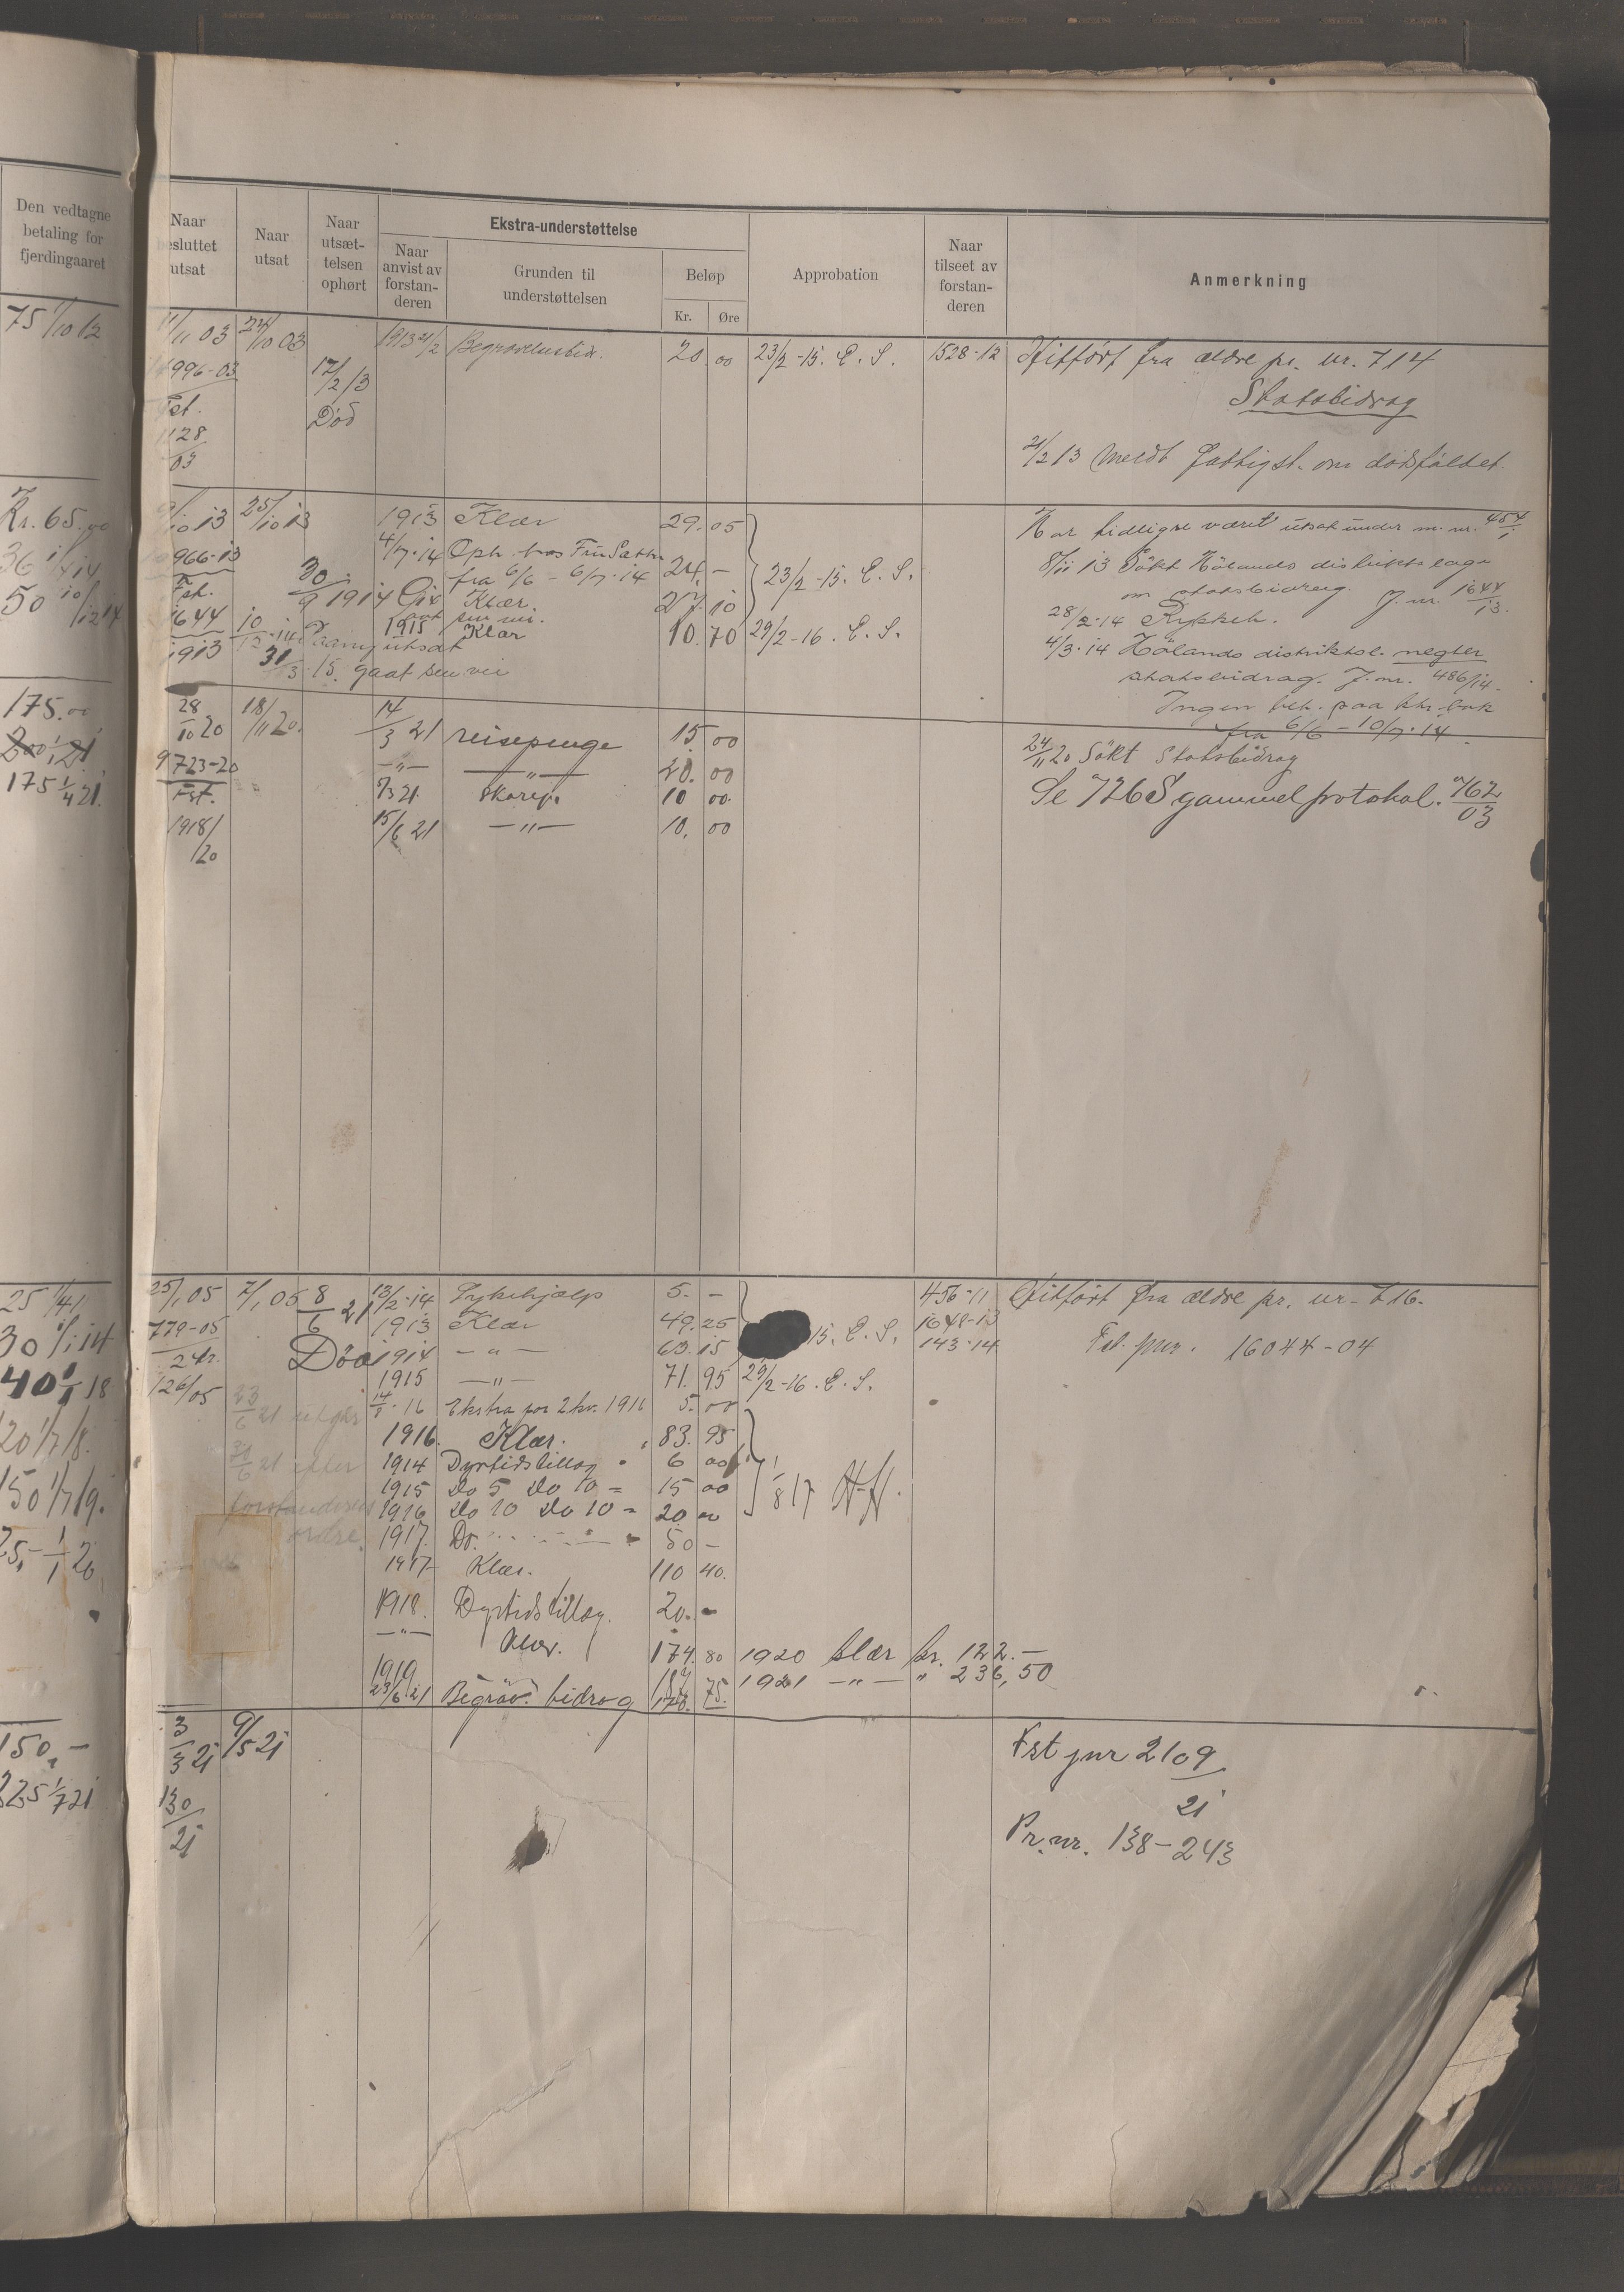 Den vedtagne
betaling for
fjerdingaaret
75 1/10 12
Kr. 65.00
36 1/4 14
50 10/12 14
175.00
200 1/1 21
175 1/4 21.
25 1/4 11
30 1/1 14
40 1/1 18
120 1/7 18.
150 1/7 19.
25,- 1/1 20
150,-
225 1/7 21
Naar
besluttet
utsat
Naar
utsat
Naar
utsæt-
telsen
ophørt
Ekstra-understøttelse
Naar
anvist av
forstan-
deren
Grunden til
understøttelsen
Beløp
Kr.
Øre
Approbation
Naar
tilseet av
forstan-
deren
Anmerkning
11/11 03 24/10 03 1913 21/2 Begravelsesbid. 20.00 23/2-15. E. S. 1528-12 Hitført fra ældre pr. nr. 714
996-03 17/2 13 Statsbidrag
Fst. Död
1128
03
21/2 13 meldt fattigst. om dödsfaldet.
9/10 13 25/10 13 1913 Klær 29.05 Har tidligere været utsat under m. nr. 454/1
966-13 4/7.14 Oph. hos Fru 24.- 8/11 13 Søkt Hölands distriktslæge
Fst. 30/9 1914 fra 6/6 - 6/7.14 23/2-15. E. S. om statsbidrag. J. nr. 1644/13.
1644 Klær. 27.10 28/2.14 Rykket.
1913 10/12.14 utsat 1915 Klær 10.70 29/2-16. E. S. 4/3.14 Hölands distriktsl. negter
31/3.15. gaat sin vei statsbidrag. J. nr. 486/14.
Ingen bet. paa
fra 6/6 - 10/7.14.
28/10 20 18/11 20. 14/3 21 reisepenge 15.00 24/11 20 Søkt Statsbidrag
9723-20 -"- -"- 20.00 Se 726 S gammel protokol. 762/03
Fst. 5/3 21. 10 00.
1918/20 15/6 21 -"- 10.00
25/1 05 7/1 05 8/6 21 13/2.14 Sykehjælp 5.- 456-11 Hitført fra ældre pr. nr. 716.
779-05 Död 1913 Klær 49.25 15. E. S. 1648-13
24r. 1914 -"- 63.15 143-14 Fst. jnr. 16044-04
126/05 1915 -"- 71.95 29/2-16. E. S.
23/6 21 utgår 14/8.16 Ekstra for 2 kv. 1916 5.00
1916. Klær. 83.95
21/6 21 efter 1914 Dyrtidstillæg 6 00
1915 Do 5 Do 10 = 15 00 1/8 17 H-H.
forstanderens 1916 Do 10 Do 10 = 20 00
ordre. 1917. Do. 50 -
1917 Klær. 110 40.
1918. Dyrtidstillæg. 20.-
-"- Klær. 174.80 1920 klær kr. 122.-
1919 1921 -"- " 236,50
23/6 21 Begrav. bidrag 75.
3/3 21 9/5 21 Fst jnr 2109
21
130
21
Pr.nr. 138-243